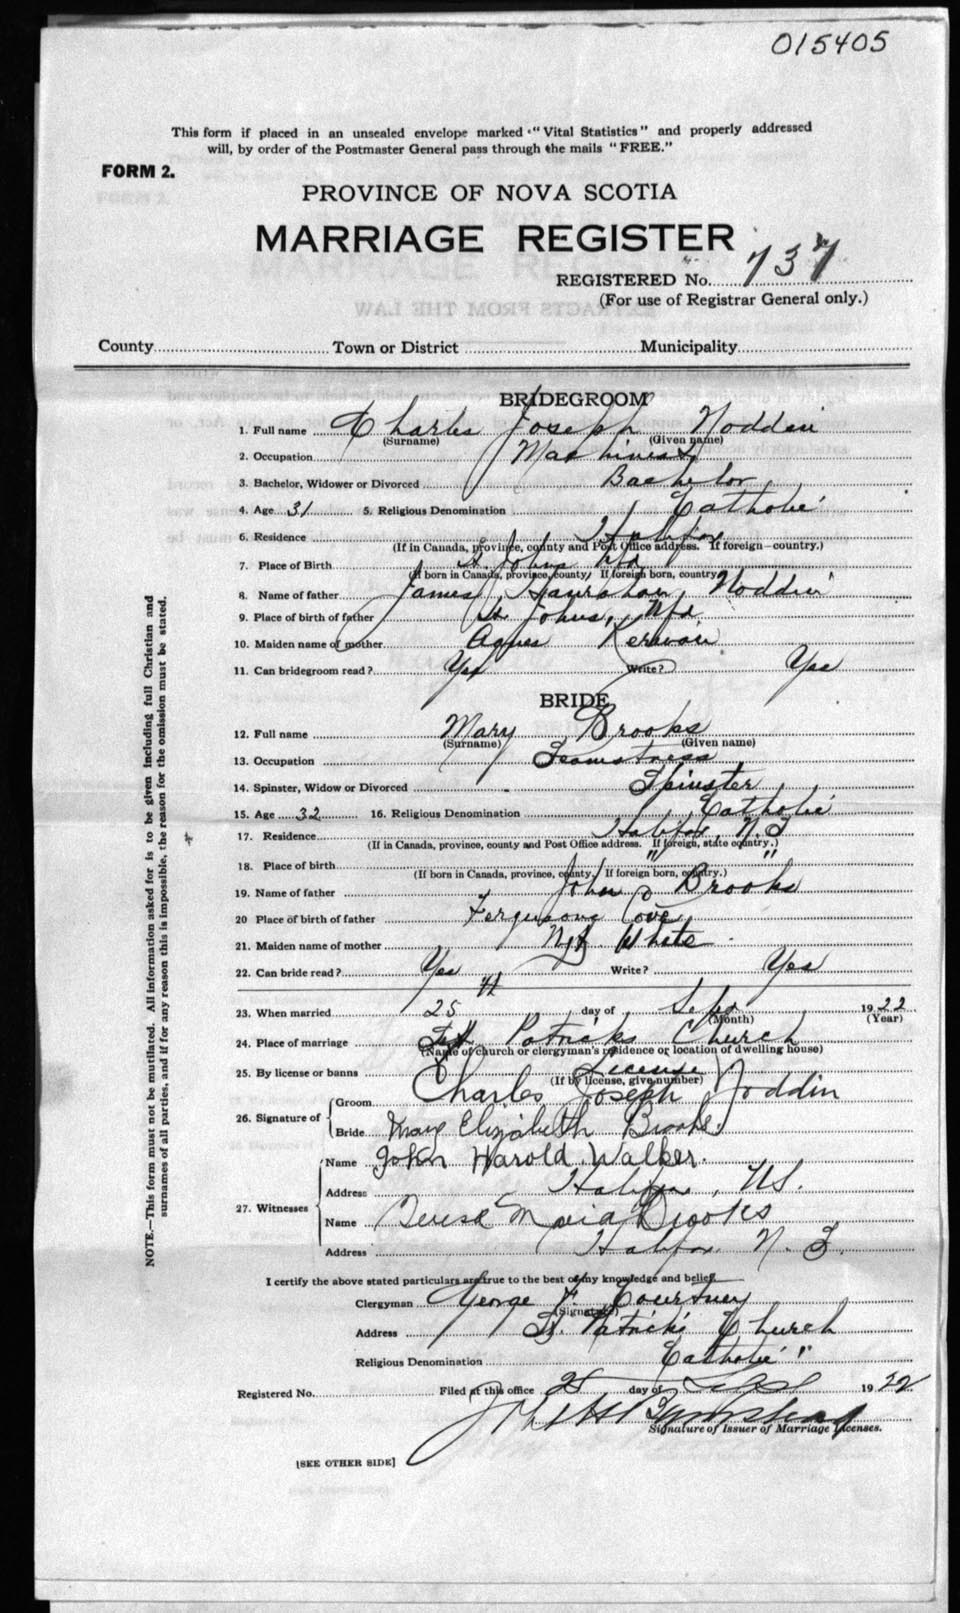 015405
This form if placed in an unsealed envelope marked "Vital Statistics" and properly addressed
will, by order of the Postmaster General pass through the mails "FREE."
FORM 2.
PROVINCE OF NOVA SCOTIA
MARRIAGE REGISTER
REGISTERED No. 737
(For use of Registrar General only.)
County Town or District Municipality
BRIDEGROOM
1. Full name Charles Joseph Noddin
(Surname) (Given name)
2. Occupation Machinist
3. Bachelor, Widower or Divorced Bachelor
4. Age 31 5. Religious Denomination Catholic
6. Residence Halifax
(If in Canada, province, county and Post Office address. If foreign—country.)
7. Place of Birth St. Johns Nfd
(If born in Canada, province, county. If foreign born, country)
8. Name of father James Hanrahan Noddin
9. Place of birth of father St Johns, Nfd
10. Maiden name of mother Agnes Kerwan
11. Can bridegroom read? Yes Write? Yes
BRIDE
12. Full name Mary Brooks
(Surname) (Given name)
13. Occupation Seamstress
14. Spinster, Widow or Divorced Spinster
15. Age 32 16. Religious Denomination Catholic
17. Residence Halifax, N.S
(If in Canada, province, county and Post Office address. If foreign, state country.)
18. Place of birth " "
(If born in Canada, province, county. If foreign born, country.)
19. Name of father John Brooks
20 Place of birth of father Fergusons Cove
21. Maiden name of mother White
22. Can bride read? Yes Write? Yes
23. When married 25 day of Sept 1922
(Month) (Year)
24. Place of marriage St Patricks Church
(Name of church or clergyman's residence or location of dwelling house)
25. By license or banns License
(If by license, give number)
26. Signature of Groom Charles Joseph Noddin
Bride Mary Elizabeth Brooks
27. Witnesses Name John Harold Walker.
Address Halifax, NS.
Name Teresa Maria Brooks
Address Halifax N. S.
I certify the above stated particulars are true to the best of my knowledge and belief.
Clergyman George F. Courtney
(Signature)
Address St. Patrick's Church
Religious Denomination Catholic "
Registered No. Filed at this office 25 day of Sept 1922
Signature of Issuer of Marriage Licenses.
[SEE OTHER SIDE]
NOTE.—This form must not be mutilated. All information asked for is to be given including full Christian and
surnames of all parties, and if for any reason this is impossible, the reason for the omission must be stated.